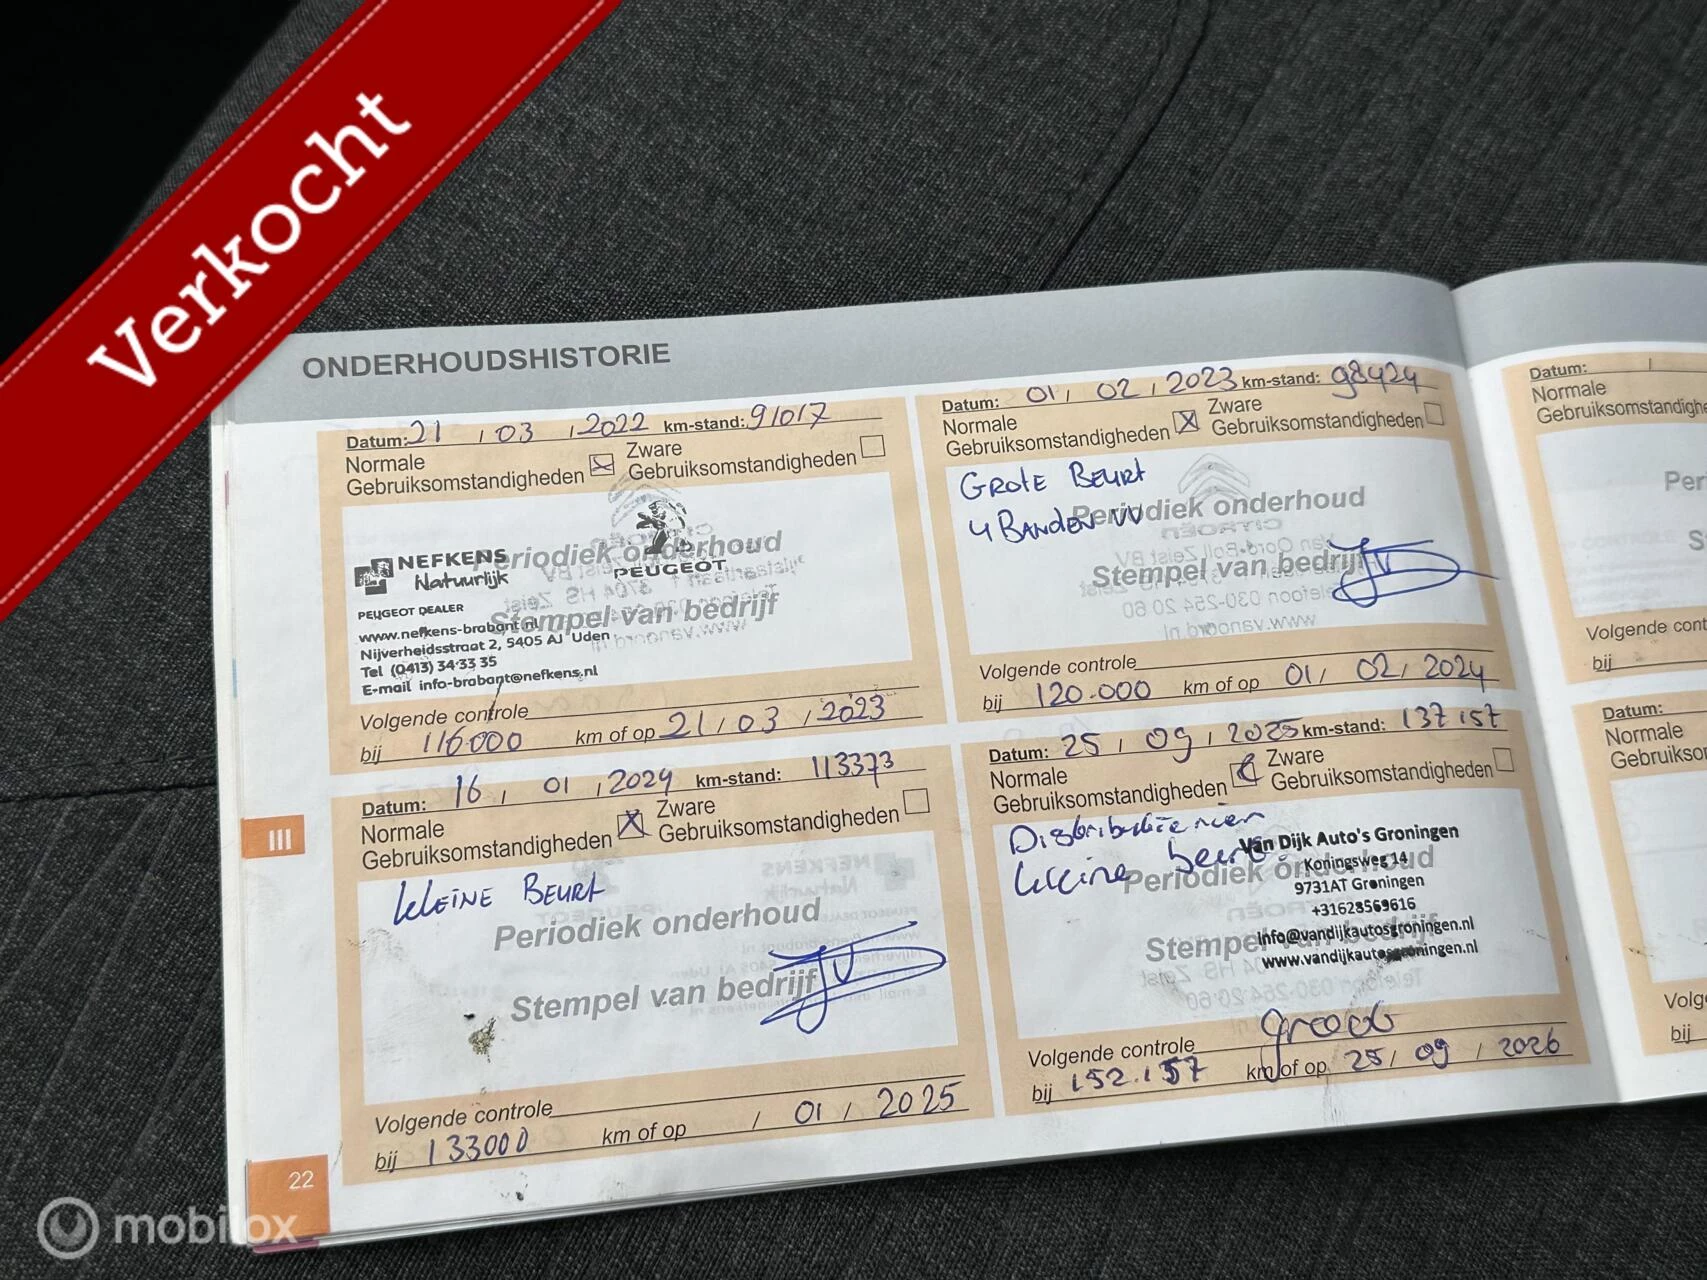 Verkocht
ONDERHOUDSHISTORIE
Datum: 21 / 03 / 2022 km-stand: 91017
Normale
Gebruiksomstandigheden
Zware
Gebruiksomstandigheden
NEFKENS
Natuurlijk
PEUGEOT
PEUGEOT DEALER
www.nefkens-brabant.nl
Nijverheidsstraat 2, 5405 AJ Uden
Tel (0413) 34 33 35
E-mail info-brabant@nefkens.nl
Periodiek onderhoud
Stempel van bedrijf
Volgende controle
bij 116000 km of op 21 / 03 / 2023
Datum: 01 / 02 / 2023 km-stand: 98424
Normale
Gebruiksomstandigheden
Zware
Gebruiksomstandigheden
GROTE BEURT
4 BANDEN VV
Periodiek onderhoud
Stempel van bedrijf
Volgende controle
bij 120.000 km of op 01 / 02 / 2024
Datum: 16 / 01 / 2024 km-stand: 113373
Normale
Gebruiksomstandigheden
Zware
Gebruiksomstandigheden
KLEINE BEURT
Periodiek onderhoud
Stempel van bedrijf
Volgende controle
bij 133000 km of op / 01 / 2025
Datum: 25 / 09 / 2025 km-stand: 137157
Normale
Gebruiksomstandigheden
Zware
Gebruiksomstandigheden
Distributieriem
kleine beurt
Van Dijk Auto's Groningen
Koningsweg 14
9731AT Groningen
+31628569616
Info@vandijkautosgroningen.nl
www.vandijkautosgroningen.nl
Periodiek onderhoud
Stempel van bedrijf
Volgende controle
bij 152.157 km of op 25 / 09 / 2026
Datum: /
Normale
Gebruiksomstandighe
Per
S
Volgende cont
bij
Datum:
Normale
Gebruikso
Volg
bij
III
22
mobilox